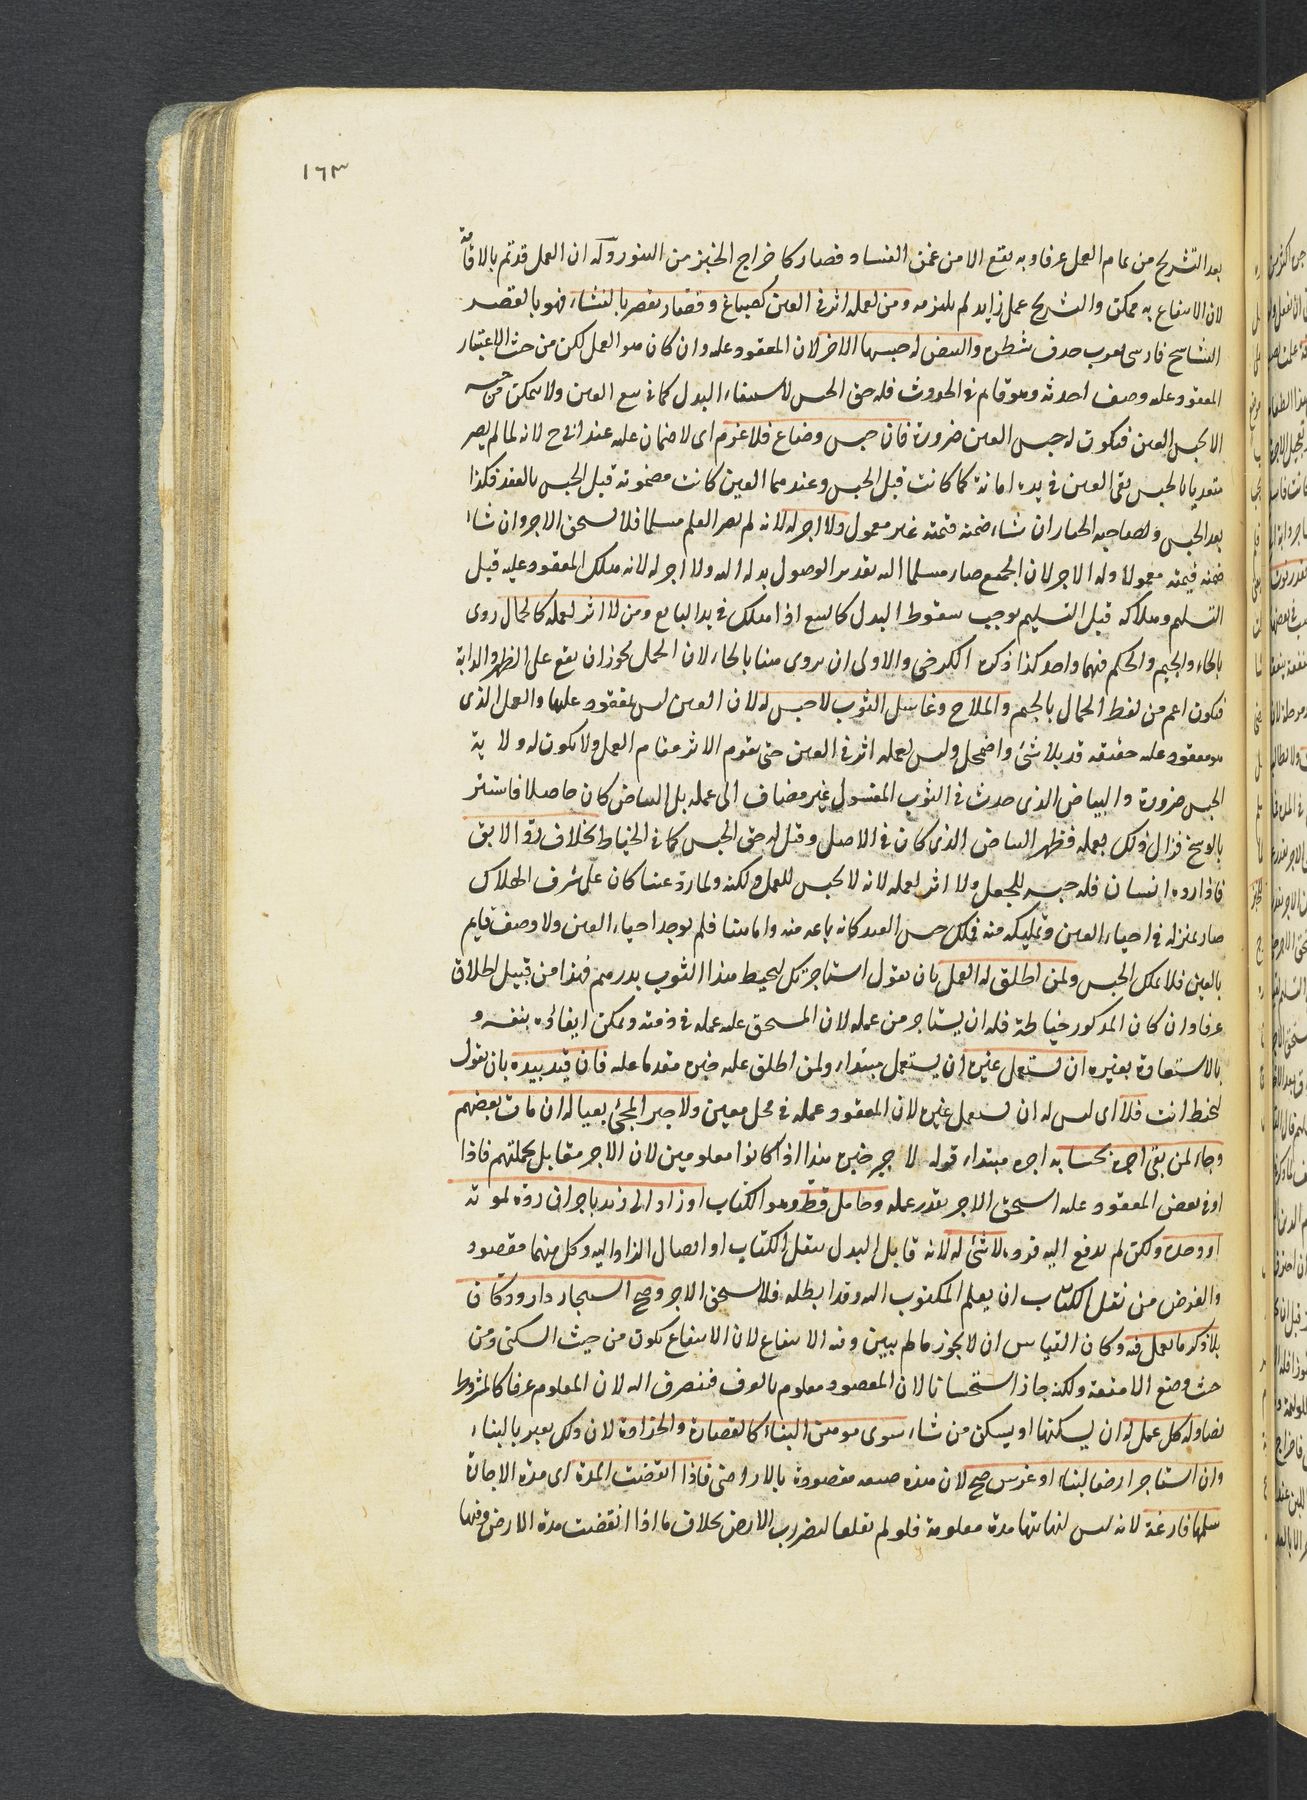 ١٦٣
بعد التشريح من تمام العمل عرفا وبه يقع الامن عن الفساد فصار كاخراج الخبز من التنور وله ان العمل قد تم بالاقامة
لان الانتفاع به ممكن والتشريح عمل زايد لم يلتزمه ومن لعمله اثر في العين كصباغ وقصار يقصر بالنشاء فهو بالقصر
النشاستج فارسي معرب حذف شطره والبيض له حبسها للاجر لان المعقود عليه وان كان هو العمل لكن من حيث الاعتبار
المعقود عليه وصف احدثه وهو قايم في الحدوث فله حق الحبس لاستيفاء البدل كما في بيع العين ولا يمكن حبسه
الا بحبس العين فتكون له حبس العين ضرورة فان حبس وضاع فلا غرم اى لا ضمان عليه عند ابى ح لانه لما لم يصر
متعديا بالحبس بقى العين في يده امانة كما كانت قبل الحبس وعندهما العين كانت مضمونة قبل الحبس بالعقد فكذا
بعد الحبس ولصاحبه الخيار ان شاء ضمنه قيمته غير معمول ولا اجر له لانه لم يصر العلم مسلما فلا يستحق الاجر وان شاء
ضمنه قيمته معمولا وله الاجر لان الجميع صار مسلما اليه بتقدير الوصول بدله اليه ولا اجر له لانه هلك المعقود عليه قبل
التسليم وهلاكه قبل التسليم يوجب سقوط البدل كالبيع اذا هلك في يد البايع ومن لا اثر لعمله كالحمال روى
بالحاء والجيم والحكم فيهما واحد كذا ذكره الكرخى والاولى ان يروى هنا بالحاء لان الحمل يجوز ان يقع على الظهر والدابة
فيكون اعم من لفظ الحمال بالجيم والملاح وغاسل الثوب لا حبس له لان العين ليس بمعقود عليها والعمل الذى
هو معقود عليه حقيقة قد تلاشى واضمحل وليس لعمله اثر في العين حتى يقوم الاثر مقام العمل ولا يكون له ولاية
الحبس ضرورة والبياض الذى حدث في الثوب المغسول غير مضاف الى عمله بل البياض كان حاصلا فاستتر
بالوسخ فزال ذلك بعمله فظهر البياض الذى كان في الاصل وقيل له حق الحبس كما في الخياط بخلاف رد الابق
فاذا رده انسان فله حبسه للجعل ولا اثر لعمله لانه لا يحبس للعمل ولكنه ولما رد عينا كان على شرف الهلاك
صار بمنزلة في احياء العين وتمليكه منه فملك حبس العبد كانه باعه منه واما هنا فلم يوجد احياء العين ولا وصف قايم
بالعين فلا يملك الحبس ولمن اطلق له العمل بان يقول استاجرتك لتخيط هذا الثوب بدرهم فهذا من قبيل اطلاق
عرفا وان كان المذكور خياطة فله ان يستاجر من عمله لان المستحق عليه عمله في ذمته ويمكن ايفاؤه بنفسه و
بالاستعانة بغيره ان يستعمل غيره ان يستعمل مبتداء ولمن اطلق عليه خبره مقدما عليه فان قيد بيده بان يقول
لتخيط انت فلا اى ليس له ان يستعمل غيره لان المعقود عمله في محل معين ولاجير المجئ بعياله ان مات بعضهم
وجاء لمن بقى اجره بحسابه اجره مبتداء قوله لاجير خبره هذا اذا كانوا معلومين لان الاجر مقابل بحملتهم فاذا
اوفى بعض المعقود عليه استحق الاجر بقدر عمله وحامل قط وهو الكتاب او زاد الى زيد باجر ان رده لموته
او وحده ولكن لم يدفع اليه فرده لا شئ له لانه قابل البدل بنقل الكتاب او ايصال الزاد اليه وكل منهما مقصود
والغرض من نقل الكتاب ان يعلم المكتوب اليه وقد ابطله فلا يستحق الاجر وصح استيجار دار ودكان
بلا ذكر ما يعمل فيه وكان القياس ان لا يجوز ما لم يبين وفيه الانتفاع لان الانتفاع يكون من حيث السكنى ومن
حيث وضع الامتعة ولكنه جاز استحسانا لان المقصود معلوم بالعرف فينصرف اليه لان المعلوم عرفا كالمشروط
نصا وله كل عمل له ان يسكنها او يسكن من شاء سوى موهن البناء كالقصارة والحدادة لان ذلك يضر بالبناء
وان استاجر ارضا لبناء او غرس صح لان هذه منفعة مقصودة بالاراضى فاذا انقضت المدة اى مدة الاجارة
سلمها فارغة لانه ليس لنهايتها مدة معلومة فلو لم نقلعها ليضر رب الارض بخلاف ما اذا انقضت مدة الارض وفيها